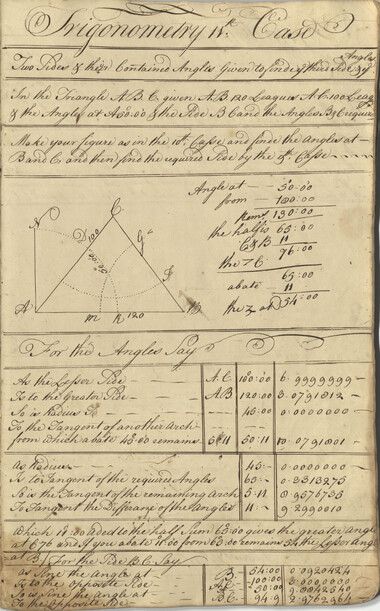 Trigonometry 11th Case
Two Sides & their Contained Angles Given to finde y third Side & y Angles
In the Triangle A B C given A B 120 Leagues A C 100 Leag
& the Angle at A 50:00 & the Side B C and the Angles B & C require
Make your figure as in the 10th Casse and finde the Angles at
B and C and then find the required Side by the Casse
Angle at — 50:00
from — 180:00
Rems 130:00
the half is 65:00
C & B 11
the C 76:00
65:00
abate 11
the at B 54:00
N
C
D
100
50:00
A
M
120
B
For the Angles Say
As the Lesser Side — A C 100:00 6.9999999
Is to the Greater Side — A B 120:00 3.0791812
So is Radius — 45:00 0.0000000
To the Tangent of another Arch
from which abate 45:00 remains 5:11 50:11 10.0791801
As Radius 45: 0.0000000
Is to Tangent of the required Angles 65: 0.3313275
So is the Tangent of the remaining Arch 5.11 8.9576735
To Tangent the Differance of the Angles 11 9.2990010
Which 11:00 Aded to the half Sum 65:00 gives the greater angle
at C 76 and if you abate 11:00 from 65:00 remains 54 the Lesser Angle
at B For the Side B C Say
as Sine the Angle at B 54:00 0.0920424
Is to the Opposite Side A C 100:00
So is Sine the Angle at A 50:00 9.8842540
To the Opposite Side B C 94.9 2.9762964